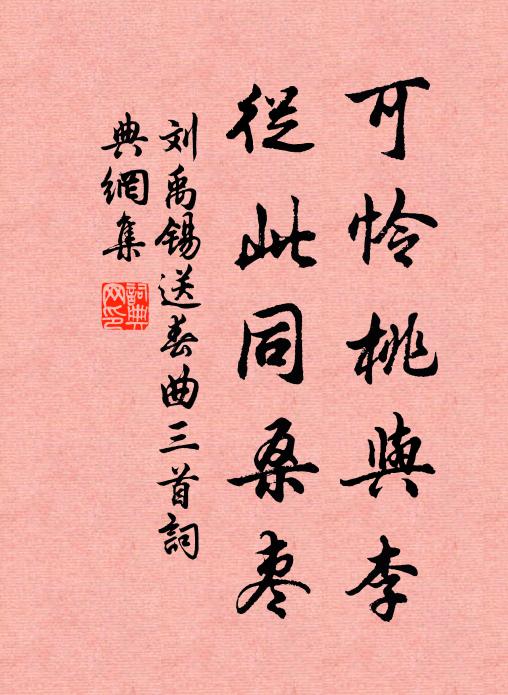 可怜桃與李
從此同桑枣
刘禹锡送春曲三首詞
典網集
詞典网印